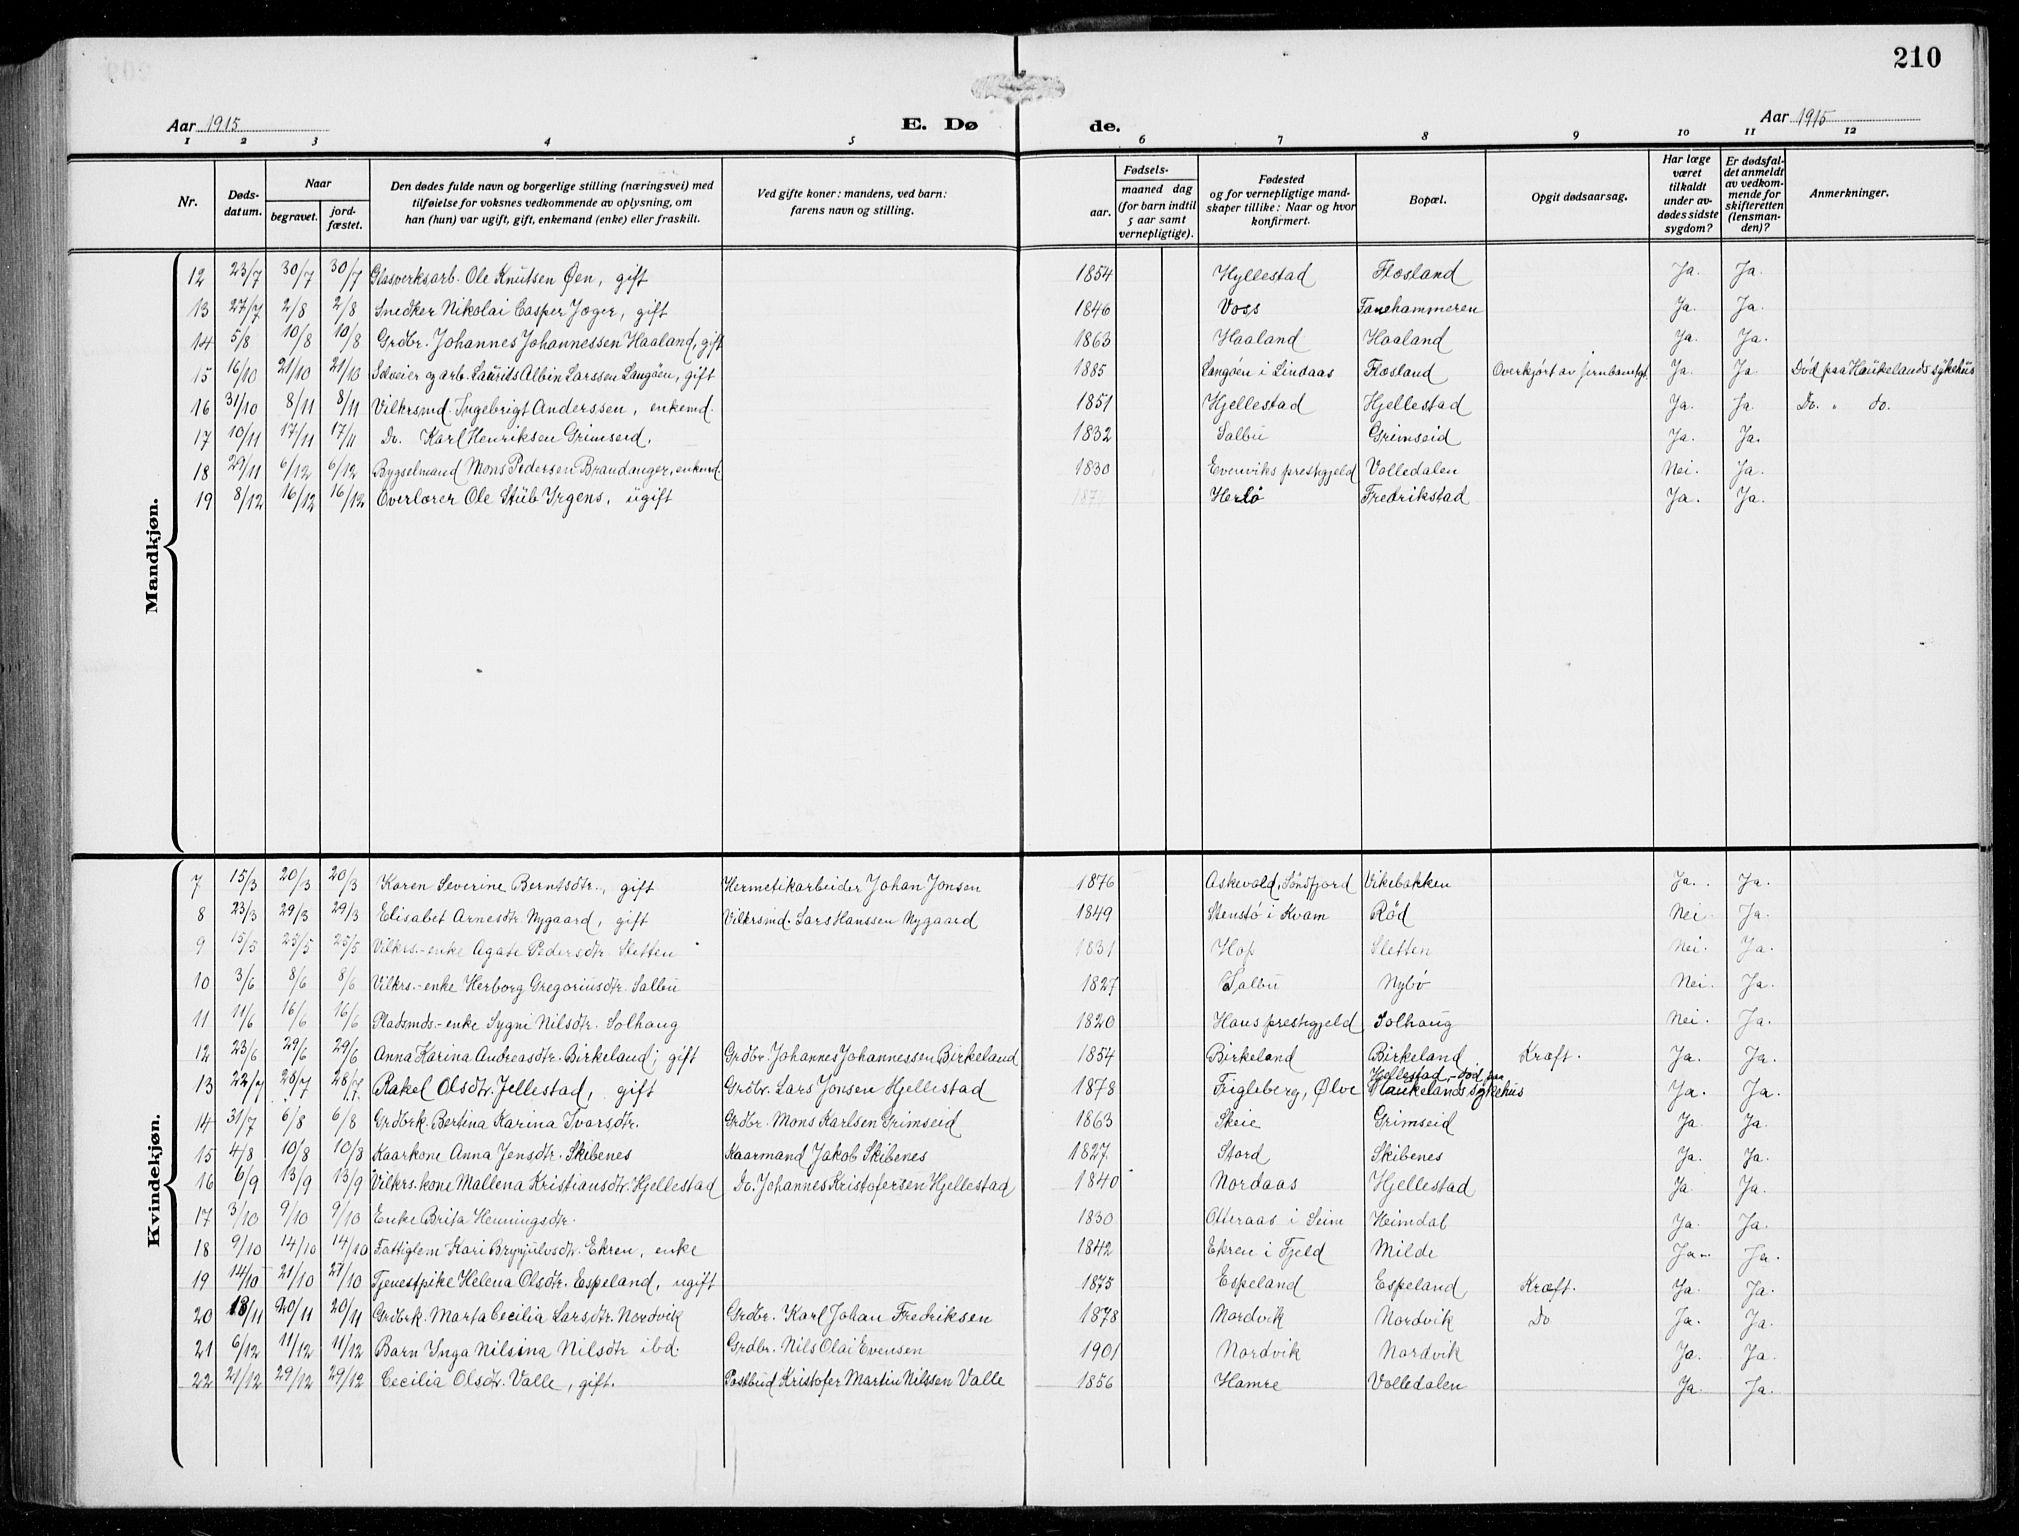 210
Aar 1915
E. Dø
de.
Aar 1915
1 2 3 4 5 6 7 8 9 10 11 12
Nr.
Døds-
datum.
Naar
begravet.
jord-
fæstet.
Den dødes fulde navn og borgerlige stilling (næringsvei) med
tilføielse for voksnes vedkommende av oplysning, om
han (hun) var ugift, gift, enkemand (enke) eller fraskilt.
Ved gifte koner: mandens, ved barn:
farens navn og stilling.
Fødsels-
aar.
maaned dag
(for barn indtil
5 aar samt
vernepligtige).
Fødested
og for vernepligtige mand-
skaper tillike: Naar og hvor
konfirmert.
Bopæl.
Opgit dødsaarsag.
Har læge
været
tilkaldt
under av-
dødes sidste
sygdom?
Er dødsfal-
det anmeldt
av vedkom-
mende for
skifteretten
(lensman-
den)?
Anmerkninger.
Mandkjøn.
12 23/7 30/7 30/7 Glasverksarb. Ole Knutsen Øen, gift 1854 Hyllestad Flesland Ja. Ja.
13 27/7 2/8 2/8 Snedker Nikolai Casper Jæger, gift 1846 Voss Fanehammeren Ja. Ja.
14 5/8 10/8 10/8 Grdbr. Johannes Johannessen Haaland, gift 1863 Haaland Haaland Ja. Ja.
15 16/10 21/10 21/10 Selveier og arb. Laurits Albin Larssen Langøen, gift 1885 Langøen i Lindaas Flesland Overkjørt av jernbanetgt. Ja. Ja. Død paa Haukelands sykehus
16 31/10 8/11 8/11 Vilkrsmd. Ingebrigt Anderssen, enkemd. 1851 Hjellestad Hjellestad Ja. Ja. Do. " do.
17 10/11 17/11 17/11 Do. Karl Henriksen Grimseid. 1832 Salbu Grimseid Ja. Ja.
18 29/11 6/12 6/12 Bygselmand Mons Pedersen Brandanger, enkemd. 1830 Evenviks prestegjeld Valledalen Nei. Ja.
19 8/12 16/12 16/12 Overlærer Ole Stub Yrgens, ugift 187 Herlø Fredrikstad Ja. Ja.
Kvindekjøn.
7 15/3 20/3 20/3 Karen Severine Berntsdtr., gift Hermetikarbeider Johan Jonsen 1876 Askevold, Søndfjord Vikebakken Ja. Ja.
8 23/3 29/3 29/3 Elisabet Arnesdtr. Nygaard, gift Vilkrsmd. Lars Hanssen Nygaard 1849 Stenstø i Kvam Rød Nei. Ja.
9 15/5 25/5 25/5 Vilkrs.-enke Agate Pedersdtr. Sletten 1831 Hop Sletten Nei. Ja.
10 3/6 8/6 8/6 Vilkrs.-enke Herborg Gregoriusdtr. Salbu 1827 Salbu Nybø Nei. Ja.
11 11/6 16/6 16/6 Pladsmds.-enke Sygni Nilsdtr. Solhaug 1820 Haus prestegjeld Solhaug Nei. Ja.
12 23/6 29/6 29/6 Anna Karina Andreasdtr. Birkeland, gift Grdbr. Johannes Johannessen Birkeland 1854 Birkeland Birkeland Kræft. Ja. Ja.
13 22/7 28/7 28/7 Rakel Olsdtr. Jellestad, gift Grdbr. Lars Jonsen Hjellestad 1878 Fugleberg, Ølve Hjellestad, - død paa Haukelands sykehus Ja. Ja.
14 31/7 6/8 6/8 Grdbrk. Bertina Karina Ivarsdtr. Grdbr. Mons Karlsen Grimseid 1863 Skeie Grimseid Ja. Ja.
15 4/8 10/8 10/8 Kaarkone Anna Jensdtr. Skibenes Kaarmand Jakob Skibenes 1827. Stord Skibenes Ja. Ja.
16 6/9 13/9 13/9 Vilkrs.kone Mallena Kristiansdtr. Hjellestad Do. Johannes Kristofersen Hjellestad 1840 Nordaas Hjellestad Ja. Ja.
17 3/10 9/10 9/10 Enke Brita Henningsdtr. 1830 Otteraas i Seim Heimdal Ja. Ja.
18 9/10 14/10 14/10 Fattiglem Kari Brynjulvsdtr. Ekren, enke 1842 Ekren i Fjeld Milde Ja. Ja.
19 14/10 21/10 21/10 Tjenestpike Helena Olsdtr. Espeland, ugift 1875 Espeland Espeland Kræft. Ja. Ja.
20 13/11 20/11 20/11 Grdbrk. Marta Cecilia Larsdtr. Nordvik Grdbr. Karl Johan Fredriksen 1878 Nordvik Nordvik Do Ja. Ja.
21 6/12 11/12 11/12 Barn Inga Nilsina Nilsdtr ibd. Grdbr. Nils Olai Evensen 1901 Nordvik Nordvik Ja. Ja.
22 21/12 29/12 29/12 Cecilia Olsdtr. Valle, gift. Postbud Kristofer Martin Nilssen Valle 1856 Hamre Valledalen Ja. Ja.